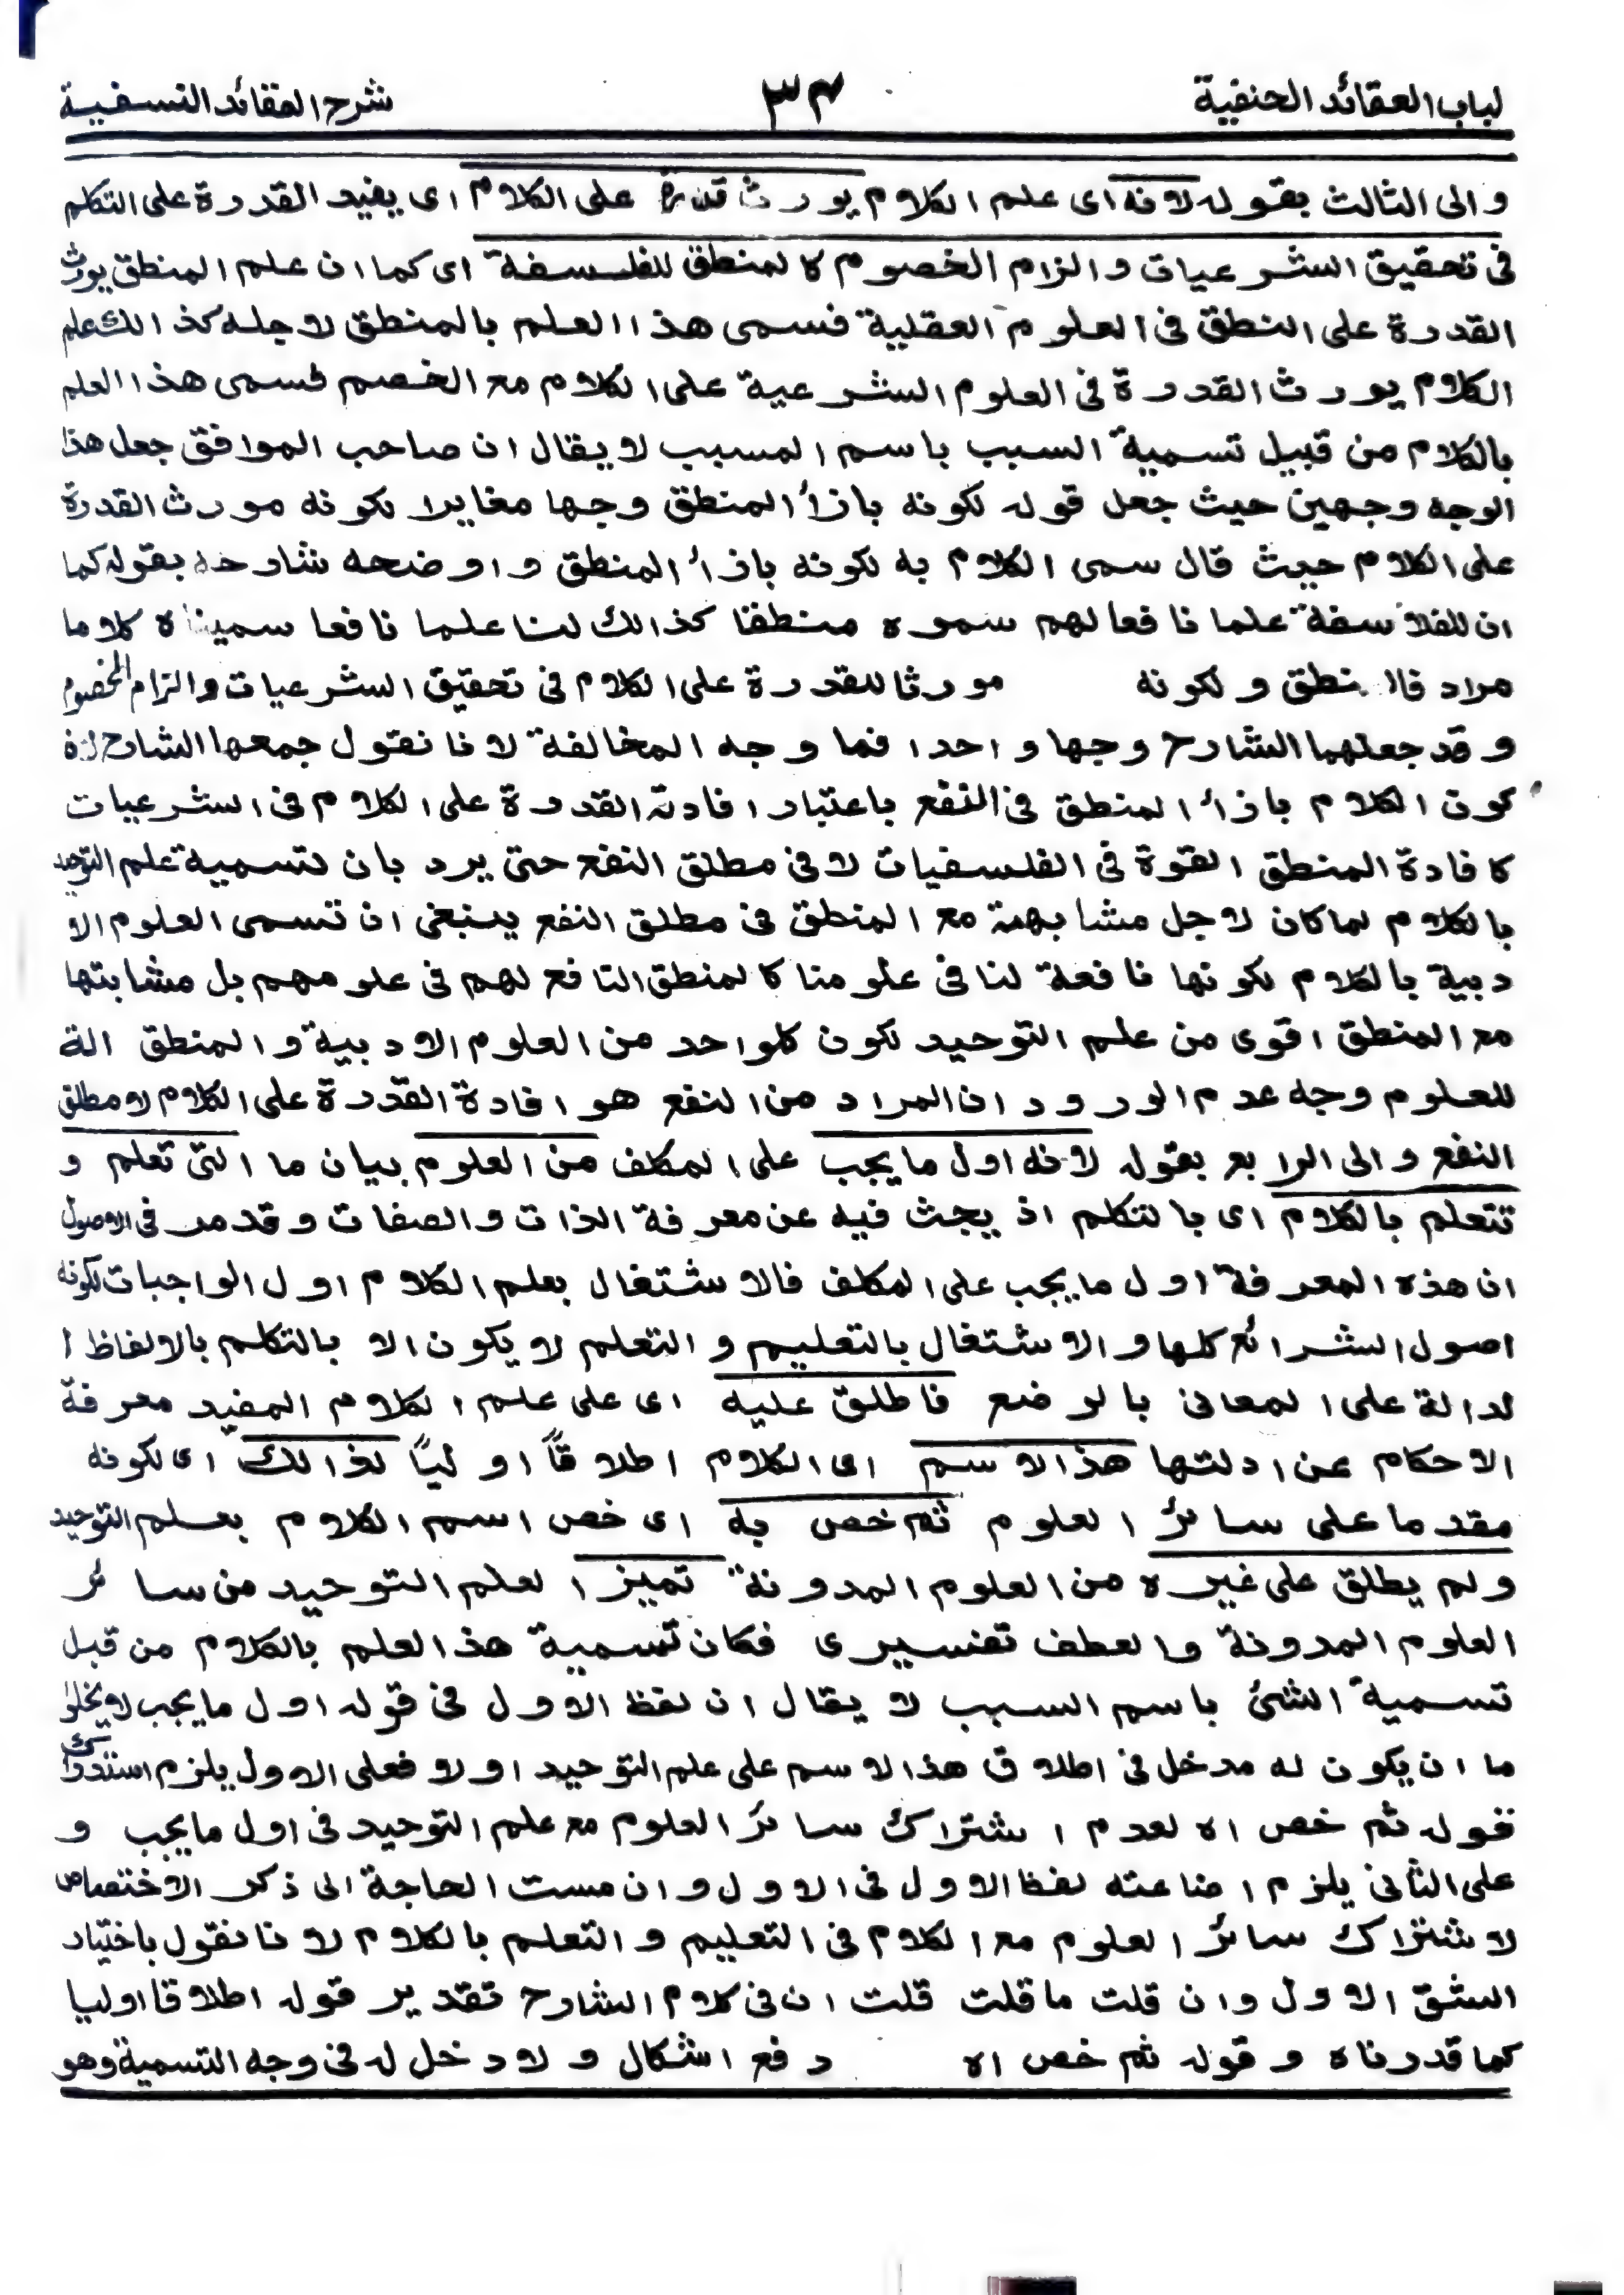 لباب العقائد الحنفية ٣٤ شرح العقائد النسفية
والى الثالث بقوله لانه اى علم الكلام يورث قدرة على الكلام اى يفيد القدرة على التكلم
فى تحقيق الشرعيات والزام الخصوم كالمنطق للفلسفة اى كما ان علم المنطق يورث
القدرة على النطق فى العلوم العقلية فسمى هذا العلم بالمنطق لاجله كذالك علم
الكلام يورث القدرة فى العلوم الشرعية على الكلام مع الخصم فسمى هذا العلم
بالكلام من قبيل تسمية السبب باسم المسبب لا يقال ان صاحب الموافق جعل هذا
الوجه وجهين حيث جعل قوله لكونه بازأ المنطق وجها مغايرا لكونه مورث القدرة
على الكلام حيث قال سمى الكلام به لكونه بازأ المنطق واوضحه شارحه بقوله كما
ان للفلاسفة علما نافعا لهم سموه منطقا كذالك لنا علما نافعا سميناه كلاما
مراد فالا نطق ولكونه مورثا للقدرة على الكلام فى تحقيق الشرعيات والزام الخصوم
وقد جعلهما الشارح وجها واحدا فما وجه المخالفة لانا نقول جمعها الشارح
كون الكلام بازأ المنطق فى النفع باعتبار افادته القدرة على الكلام فى الشرعيات
كافادة المنطق القوة فى الفلسفيات لا فى مطلق النفع حتى يرد بان تسمية علم التوحيد
بالكلام لما كان لاجل مشابهة مع المنطق فى مطلق النفع ينبغى ان تسمى العلوم الا
دبية بالكلام لكونها نافعة لنا فى علومنا كالمنطق النافع لهم فى علومهم بل مشابتها
مع المنطق اقوى من علم التوحيد لكون كلواحد من العلوم الادبية والمنطق الة
للعلوم وجه عدم الورود ان المراد من النفع هو افادة القدرة على الكلام لا مطلق
النفع والى الرابع بقوله لانه اول ما يجب على المكلف من العلوم بيان ما التى تعلم و
تتعلم بالكلام اى بالتكلم اذ يبحث فيه عن معرفة الذات والصفات وقد مر فى الاصول
ان هذه المعرفة اول ما يجب على المكلف فالاشتغال بعلم الكلام اول الواجبات لكونه
اصول الشرائع كلها والاشتغال بالتعليم والتعلم لا يكون الا بالتكلم بالالفاظ ا
لدالة على المعانى بالوضع فاطلق عليه اى على علم الكلام المفيد معرفة
الاحكام عن ادلتها هذالاسم اى الكلام اطلاقاً اولياً لذالك اى لكونه
مقدما على سائر العلوم ثم خص به اى خص اسم الكلام بعلم التوحيد
ولم يطلق على غيره من العلوم المدونة تميزا لعلم التوحيد من سائر
العلوم المدونة والعطف تفسيرى فكان تسمية هذالعلم بالكلام من قبل
تسمية الشئ باسم السبب لا يقال ان لفظ الاول فى قوله اول ما يجب لا يخلوا
ما ان يكون له مدخل فى اطلاق هذالاسم على علم التوحيد اولا فعلى الاول يلزم استدراك
قوله ثم خص اه لعدم اشتراك سائر العلوم مع علم التوحيد فى اول ما يجب و
على الثانى يلزم اضاعته لفظ الاول فى الاول وان مست الحاجة الى ذكر الاختصاص
لاشتراك سائر العلوم مع الكلام فى التعليم والتعلم بالكلام لانا نقول باختيار
الشق الاول وان قلت ما قلت قلت ان فى كلام الشارح تقدير قوله اطلاقا اوليا
كما قدرناه وقوله ثم خص اه دفع اشكال ولا دخل له فى وجه التسمية وهو